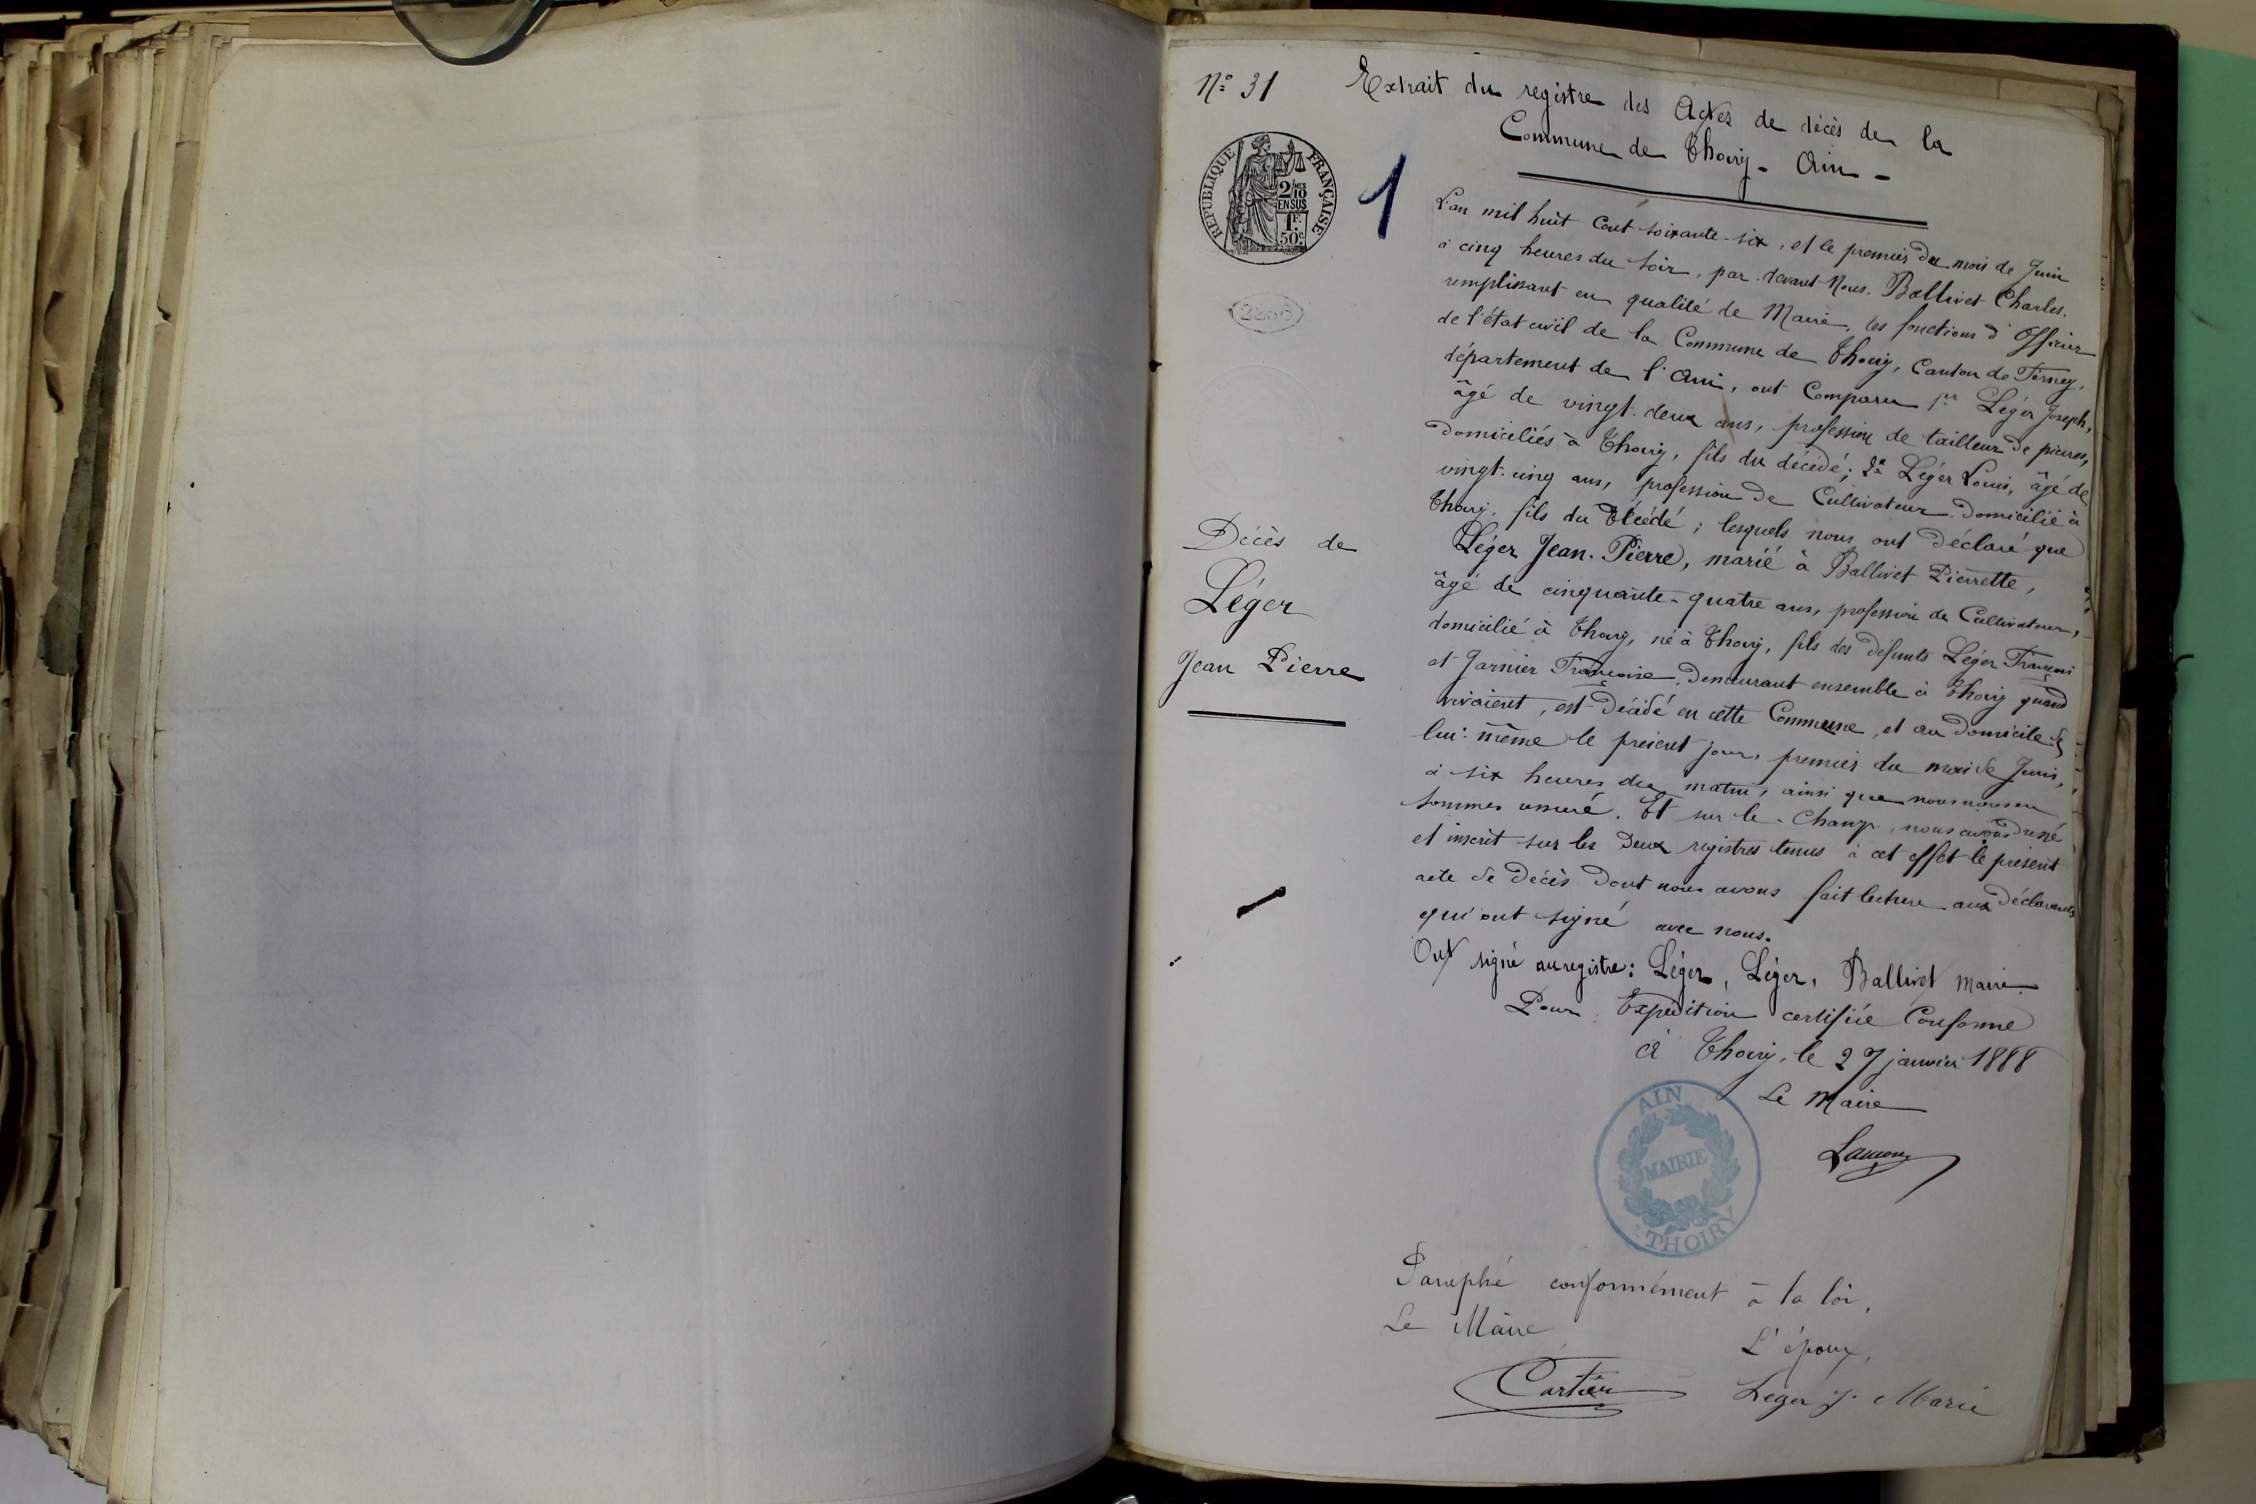 N° 31
Extrait du registre des Actes de décès de la
Commune de Thoiry - Ain -
RÉPUBLIQUE FRANÇAISE
2/10
EN SUS
1F.
50c.
1
L'an mil huit cent soixante-six, et le premier du mois de Juin
à cinq heures du soir, par devant Nous. Ballivet Charles.
remplissant en qualité de Maire, les fonctions d'Officier
de l'état civil de la Commune de Thoiry, Canton de Ferney,
département de l'Ain, ont Comparu 1er Léger Joseph,
âgé de vingt-deux ans, profession de tailleur de pierres,
domiciliés à Thoiry, fils du décédé; 2e Léger Louis, âgé de
vingt-cinq ans, profession de Cultivateur domicilié à
Thoiry, fils du Décédé; lesquels nous ont déclaré que
Léger Jean-Pierre, marié à Ballivet Pierrette,
âgé de cinquante-quatre ans, profession de Cultivateur,
domicilié à Thoiry, né à Thoiry, fils des défunts Léger François
et Garnier Françoise, demeurant ensemble à Thoiry quand
vivaient, est décédé en cette Commune, et au domicile de
lui-même le présent jour, premier du mois de Juin,
à six heures du matin, ainsi que nous nous en
sommes assuré. Et sur le-Champ, nous avons dressé
et inscrit sur les deux registres tenus à cet effet le présent
acte de décès dont nous avons fait lecture aux déclarants
qui ont signé avec nous.
Ont signé au registre: Léger, Léger, Ballivet maire.
Pour Expédition certifiée Conforme
à Thoiry, le 27 janvier 1888
Le Maire
Décès de
Léger
Jean Pierre
AIN
MAIRIE
THOIRY
Paraphé conformément à la loi,
Le Maire
L'époux,
Cartier
Leger J. Marie